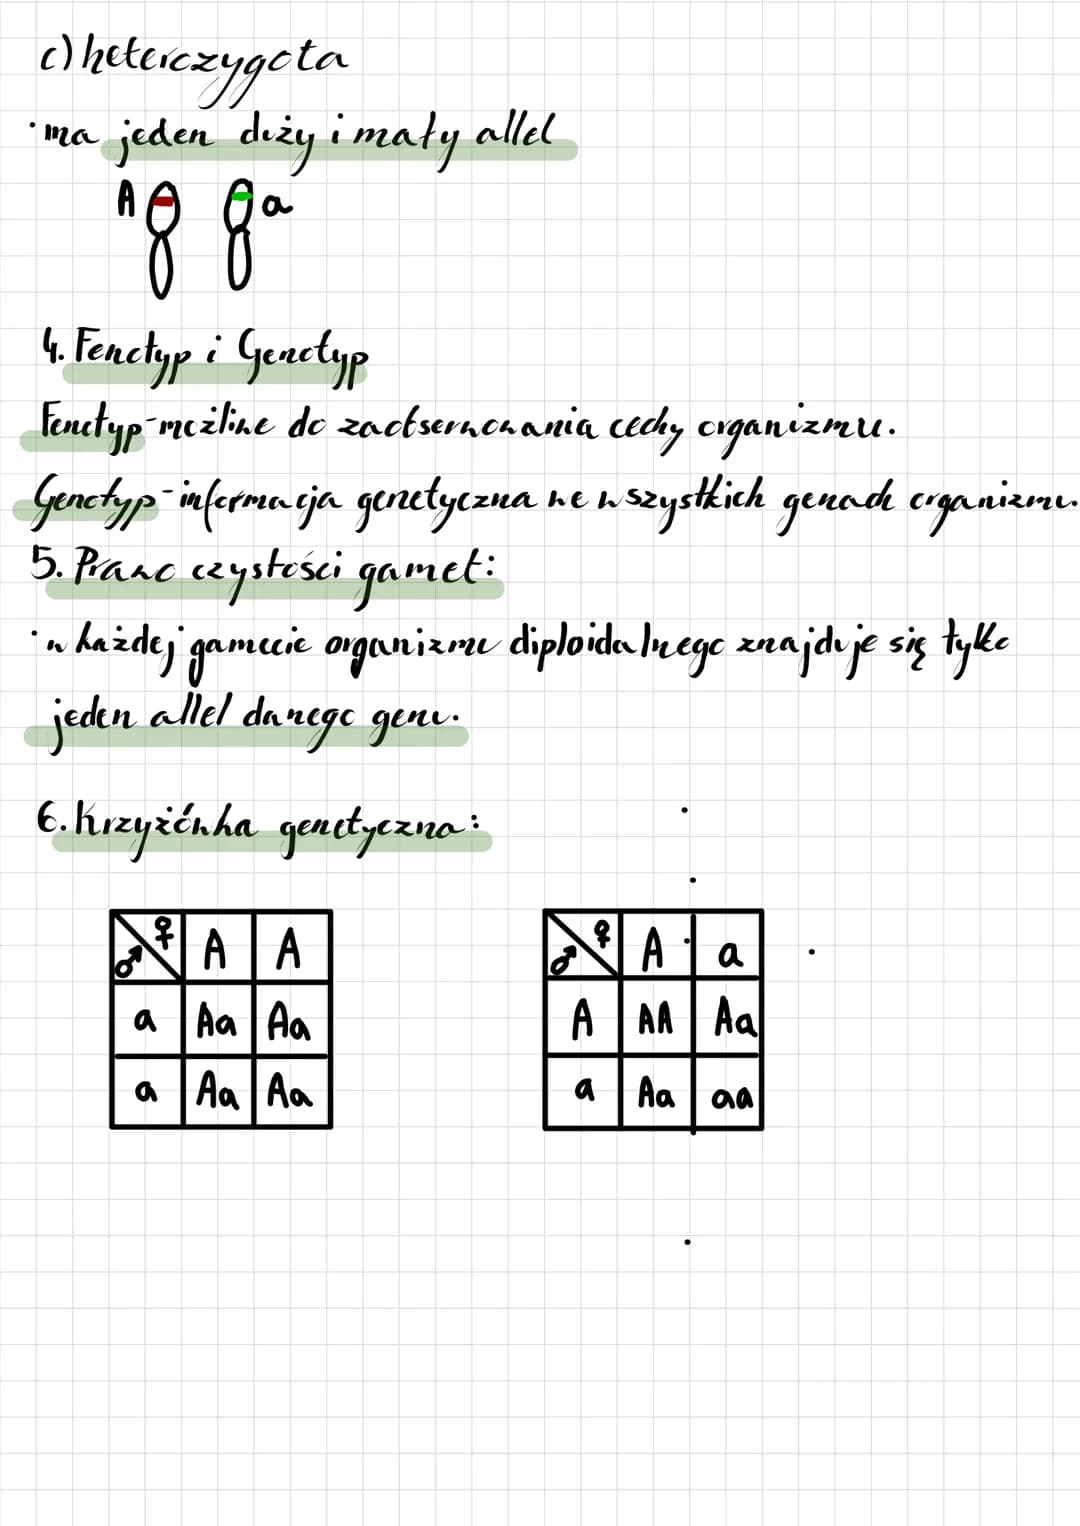 c) heterozygota
· ma jeden duży i mały allel
A a
4. Fenotyp i Genotyp
Fenotyp - możliwe do zaobserwowania cechy organizmu.
Genotyp - informacja genetyczna we wszystkich genach organizmu.
5. Prawo czystości gamet:
· w każdej gamecie organizmu diploidalnego znajduje się tylko
jeden allel danego genu.
6. Krzyżówka genetyczna:
♂ ♀ A A
a Aa Aa
a Aa Aa
♂ ♀ A a
A AA Aa
a Aa aa